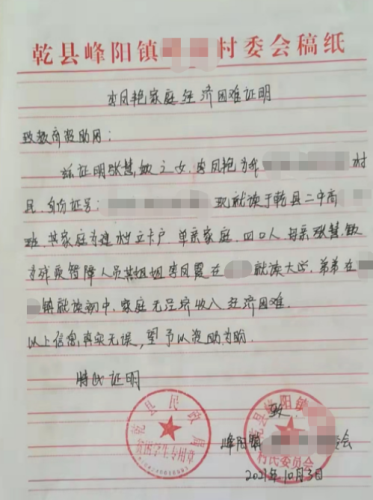 乾县峰阳镇 村委会稿纸
李凤艳家庭经济困难证明
致教育资助网：
兹证明张慧敏之女，李凤艳为我 村
民，身份证号： 现就读于乾县二中高
班，其家庭为建档立卡户，单亲家庭，四口人，母亲张慧敏
为残疾智障人员，其姐姐李凤霞在 就读大心，弟弟在
镇就读初中，家庭无经济收入，经济困难。
以上信息真实无误，望予以资助为盼。
特此证明
峰阳镇 会
2021年10月3日
乾县民政局
贫困学生专用章
乾县峰阳镇
村民委员会